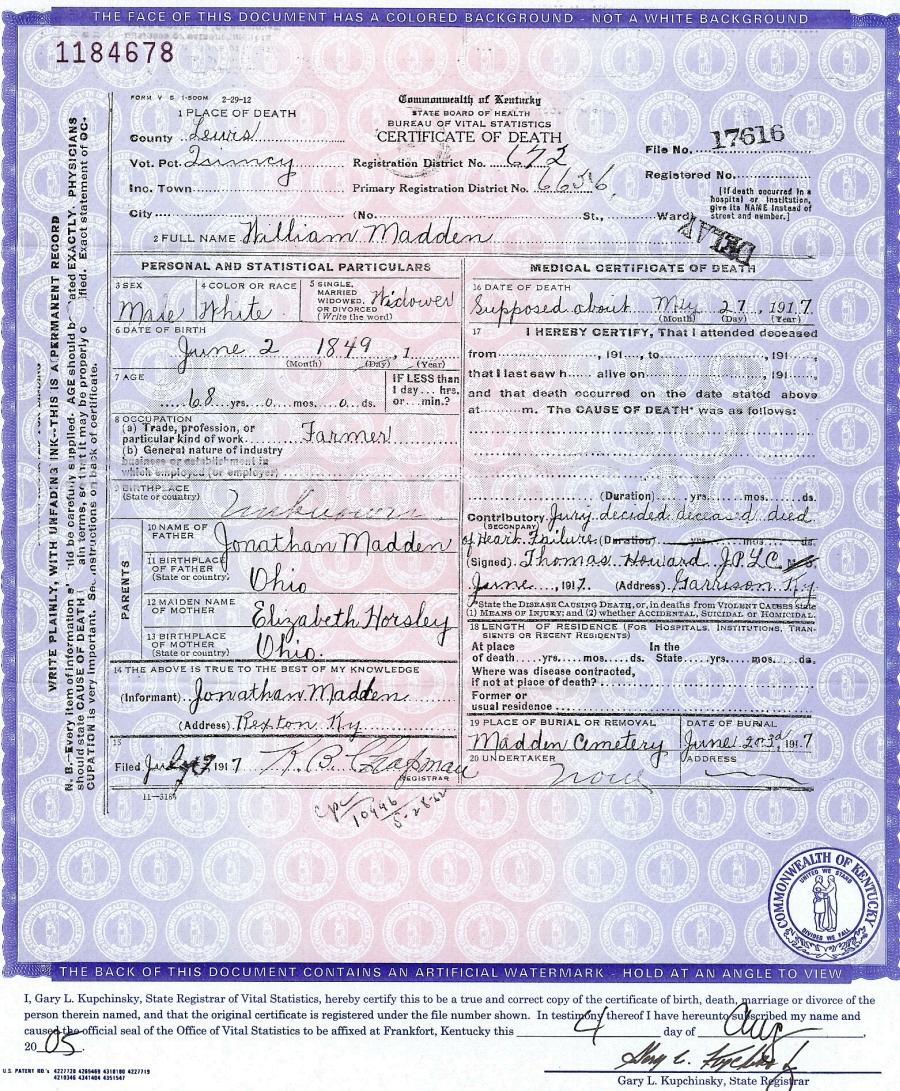 THE FACE OF THIS DOCUMENT HAS A COLORED BACKGROUND - NOT A WHITE BACKGROUND
1184678
FORM V S 1-500M 2-29-12
Commonwealth of Kentucky
STATE BOARD OF HEALTH
BUREAU OF VITAL STATISTICS
CERTIFICATE OF DEATH
1 PLACE OF DEATH
County Lewis
Vot. Pct. Quincy Registration District No. 672
File No. 17616
Inc. Town Primary Registration District No. 6636
Registered No.
[If death occurred in a hospital or institution, give its NAME instead of street and number.]
City (No. St., Ward)
DELAYED
2 FULL NAME William Madden
PERSONAL AND STATISTICAL PARTICULARS
3 SEX Male
4 COLOR OR RACE White
5 SINGLE, MARRIED WIDOWED, OR DIVORCED (Write the word) Widower
6 DATE OF BIRTH
June 2 1849, 1
(Month) (Day) (Year)
7 AGE
68 yrs. 0 mos. 0 ds.
IF LESS than 1 day... hrs. or... min.?
8 OCCUPATION
(a) Trade, profession, or particular kind of work Farmer
(b) General nature of industry
business or establishment in
which employed (or employer)
9 BIRTHPLACE
(State or country) Unknown
PARENTS
10 NAME OF FATHER Jonathan Madden
11 BIRTHPLACE OF FATHER (State or country) Ohio
12 MAIDEN NAME OF MOTHER Elizabeth Horsley
13 BIRTHPLACE OF MOTHER (State or country) Ohio.
14 THE ABOVE IS TRUE TO THE BEST OF MY KNOWLEDGE
(Informant) Jonathan Madden
(Address) Rexton Ky
15
Filed July 1917 K. B. Chapman
REGISTRAR
11-3184
cpc
10446
5-28-62
MEDICAL CERTIFICATE OF DEATH
16 DATE OF DEATH
Supposed about May 27, 1917
(Month) (Day) (Year)
17 I HEREBY CERTIFY, That I attended deceased
from , 191 , to , 191
that I last saw h alive on , 191
and that death occurred on the date stated above
at m. The CAUSE OF DEATH* was as follows:
(Duration) yrs. mos. ds.
Contributory Jury decided deceased died
(SECONDARY)
of Heart Failure (Duration) yrs. mos. ds.
(Signed) Thomas Howard J.P.L.C.
June, 1917. (Address) Garrison Ky
*State the DISEASE CAUSING DEATH, or, in deaths from VIOLENT CAUSES state
(1) MEANS OF INJURY; and (2) whether ACCIDENTAL, SUICIDAL or HOMICIDAL.
18 LENGTH OF RESIDENCE (FOR HOSPITALS, INSTITUTIONS, TRANSIENTS OR RECENT RESIDENTS)
At place In the
of death yrs. mos. ds. State yrs. mos. ds.
Where was disease contracted,
if not at place of death?
Former or
usual residence
19 PLACE OF BURIAL OR REMOVAL
Madden Cemetery
DATE OF BURIAL
June 1917
20 UNDERTAKER
None
ADDRESS
WRITE PLAINLY, WITH UNFADING INK--THIS IS A PERMANENT RECORD
N. B.--Every item of information should be carefully supplied. AGE should be stated EXACTLY. PHYSICIANS
should state CAUSE OF DEATH in plain terms, so that it may be properly classified. Exact statement of OC-
CUPATION is very important. See instructions on back of certificate.
COMMONWEALTH OF KENTUCKY
UNITED WE STAND
DIVIDED WE FALL
THE BACK OF THIS DOCUMENT CONTAINS AN ARTIFICIAL WATERMARK - HOLD AT AN ANGLE TO VIEW
I, Gary L. Kupchinsky, State Registrar of Vital Statistics, hereby certify this to be a true and correct copy of the certificate of birth, death, marriage or divorce of the
person therein named, and that the original certificate is registered under the file number shown. In testimony thereof I have hereunto subscribed my name and
caused the official seal of the Office of Vital Statistics to be affixed at Frankfort, Kentucky this 4 day of Aug,
20 05.
Gary L. Kupchinsky, State Registrar
U.S. PATENT NO.'s 4227720 4265469 4310180 4227719
4210346 4341404 4351547